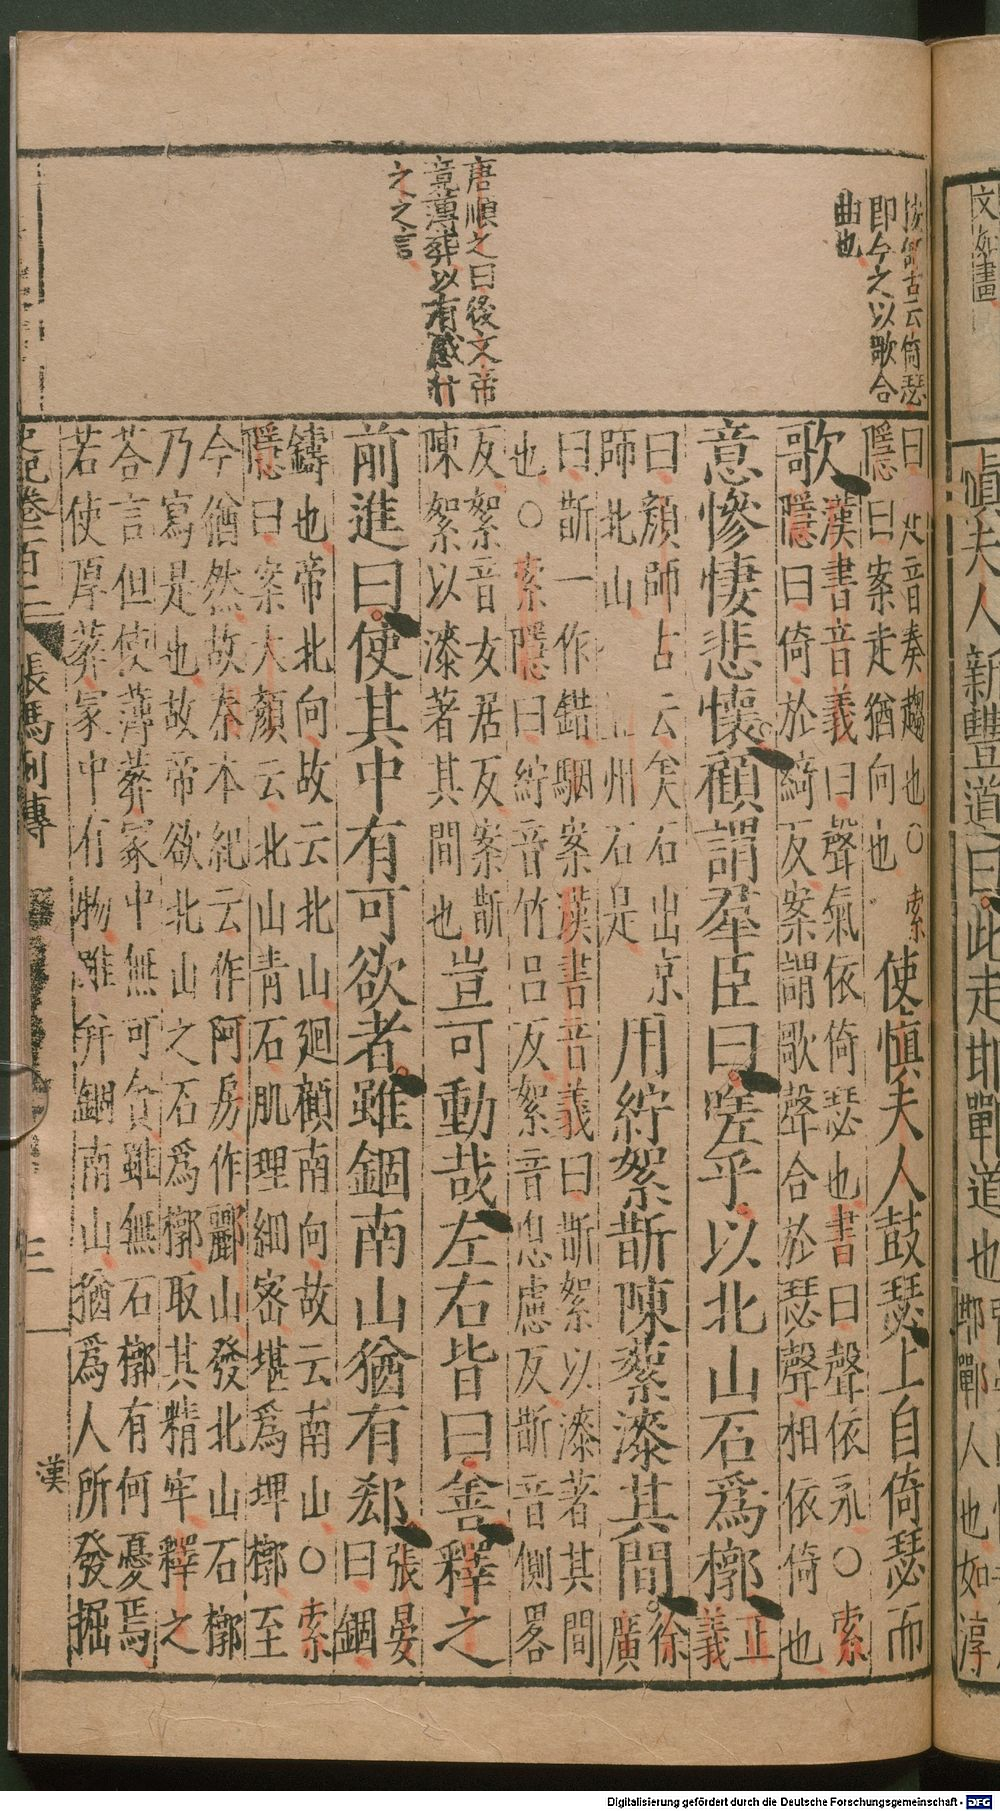 按師古云倚瑟
即今之以歌合
曲也
唐順之曰後文帝
竟薄葬以有感什
之之言
曰 音奏趨也〇索
隱曰案走猶向也
使慎夫人鼓瑟上自倚瑟而
歌
漢書音義曰聲氣依倚瑟也書曰聲依永〇索
隱曰倚於綺反案謂歌聲合於瑟聲相依倚也
意慘悽悲懷顧謂羣臣曰嗟乎以北山石爲槨
正
義
曰顏師古云美石出京
師北山 州石是
用紵絮斮陳蔡漆其間
徐
廣
曰斮一作錯駰案漢書音義曰斮絮以漆著其間
也〇索隱曰紵音竹呂反絮音息慮反斮音側畧
反絮音女居反案斮
陳絮以漆著其間也
豈可動哉左右皆曰善釋之
前進曰使其中有可欲者雖錮南山猶有郄
張晏
曰錮
鑄也帝北向故云北山廻顧南向故云南山〇索
隱曰案大顏云北山青石肌理細密堪爲堺槨至
今猶然故秦本紀云作阿房作酈山發北山石槨
乃寫是也故帝欲北山之石爲槨取其精牢釋之
荅言但使薄葬冢中無可貪雖無石槨有何憂焉
若使厚葬冢中有物雖并錮南山猶爲人所發掘
史記卷百二 張馮列傳
三
漢
文如畫
慎夫人新豐道曰此走邯鄲道也
邯鄲人也如淳
Digitalisierung gefördert durch die Deutsche Forschungsgemeinschaft - DFG